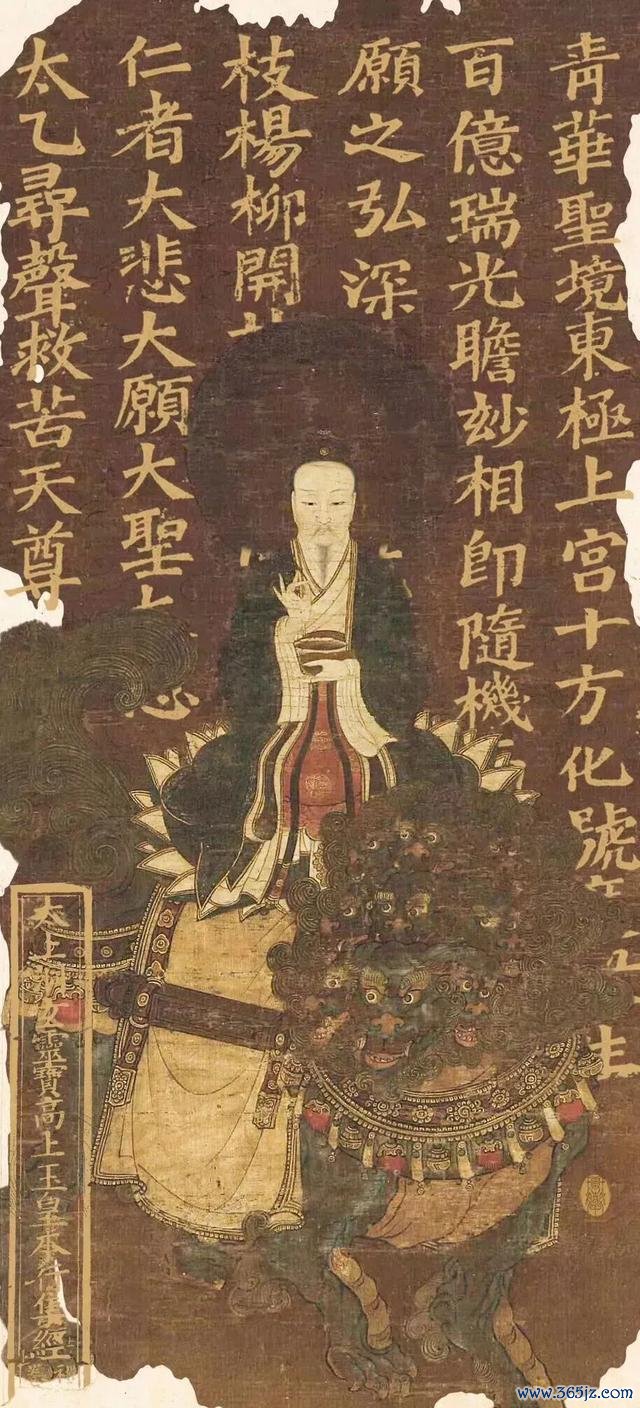 青華聖境東極上宮十方化號
百億瑞光瞻玅相即隨機
願之弘深
枝楊柳開
仁者大悲大願大聖
太乙尋聲救苦天尊
太上玄靈寶高上玉皇本行集經
www.365jz.com